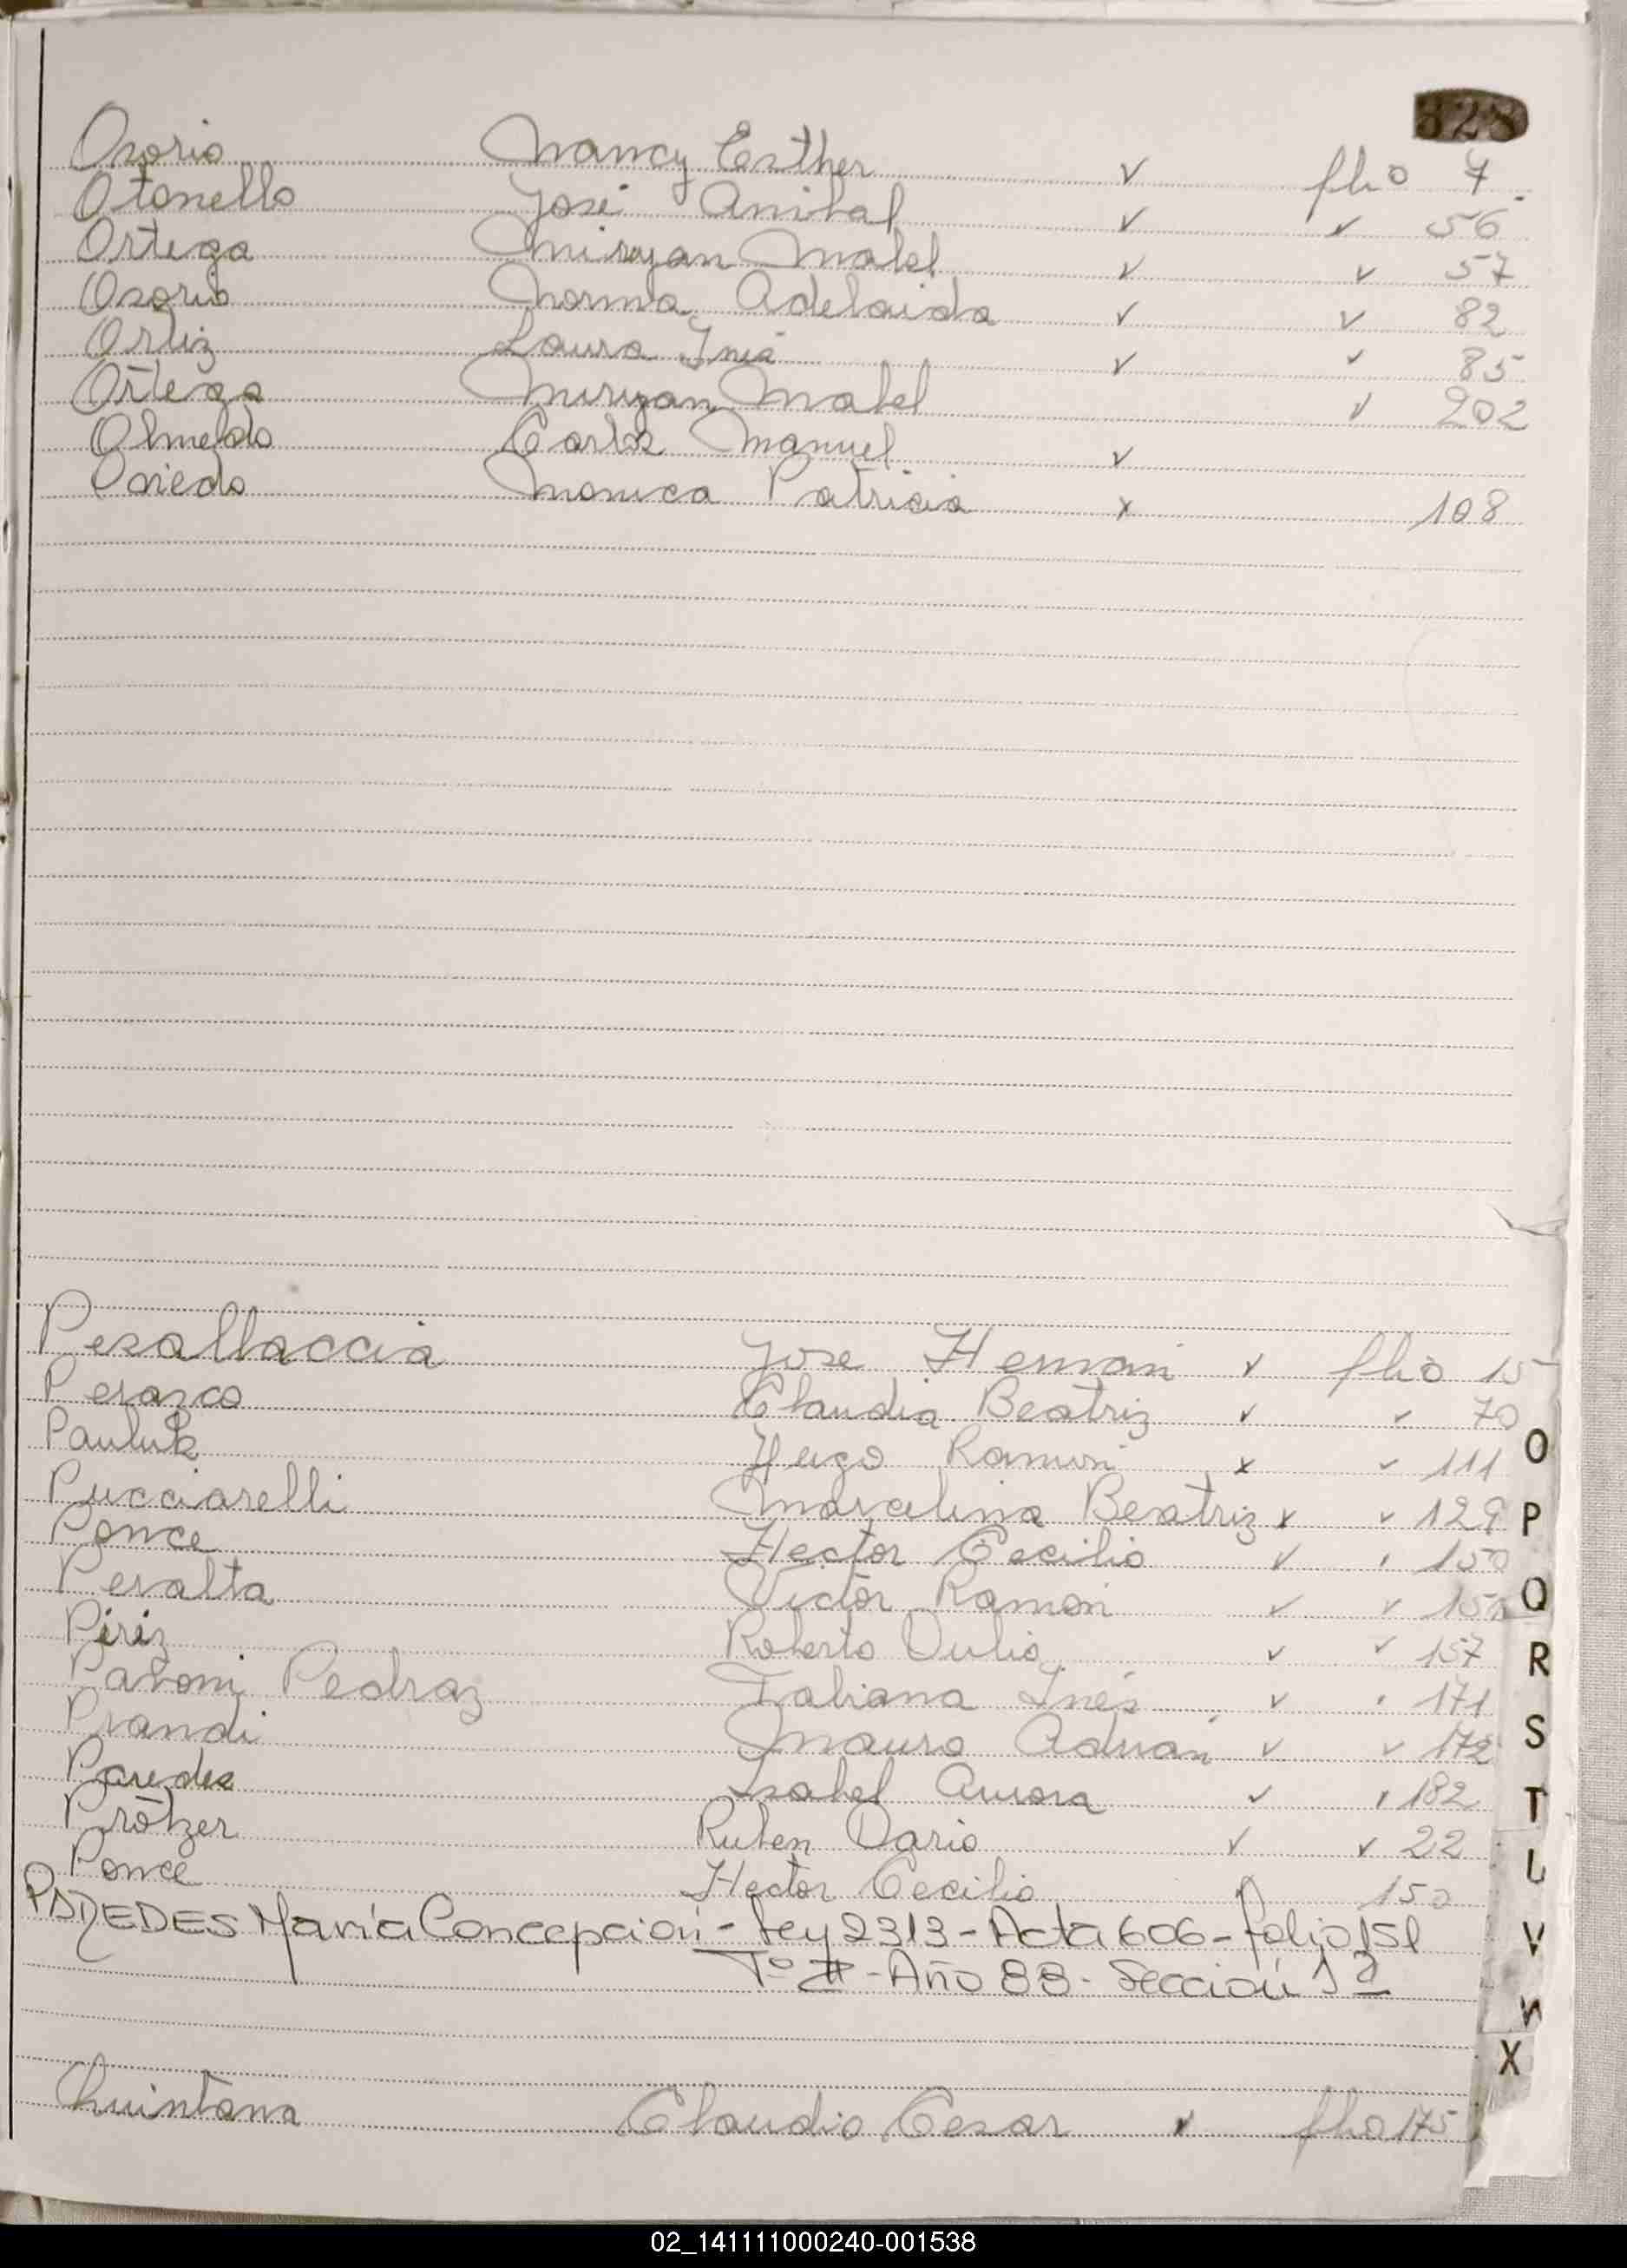 328
Osorio Nancy Esther ✓ flio 7
Otonello José Anibal ✓ ✓ 56
Ortega Miryan Mabel ✓ ✓ 57
Osorio Norma Adelaida ✓ ✓ 82
Ortiz Laura Ines ✓ ✓ 85
Ortega Miryan Mabel ✓ 202
Olmedo Carlos Manuel ✓
Oviedo Monica Patricia x 108
Pesallaccia Jose Hernan ✓ flio 15
Perazco Claudia Beatriz ✓ ✓ 70
Pauluk Hugo Ramon x ✓ 111
Pucciarelli Marcelina Beatriz x ✓ 129
Ponce Hector Cecilio ✓ ✓ 150
Peralta Victor Ramon ✓ ✓
Piriz Roberto Dulio ✓ ✓ 157
Pedraz Fabiana Inés ✓ ✓ 171
Prandi Mauro Adrian ✓ ✓ 172
Paredes Isabel Aurora ✓ ✓ 182
Prötzer Ruben Dario ✓ ✓ 22
Ponce Hector Cecilio 150
PAREDES María Concepción - Ley 2313 - Acta 606 - folio 151
Tº II - Año 88 - Sección 1ª
Quintana Claudio Cesar ✓ flio 175
O
P
Q
R
S
T
U
V
W
X
02_141111000240-001538